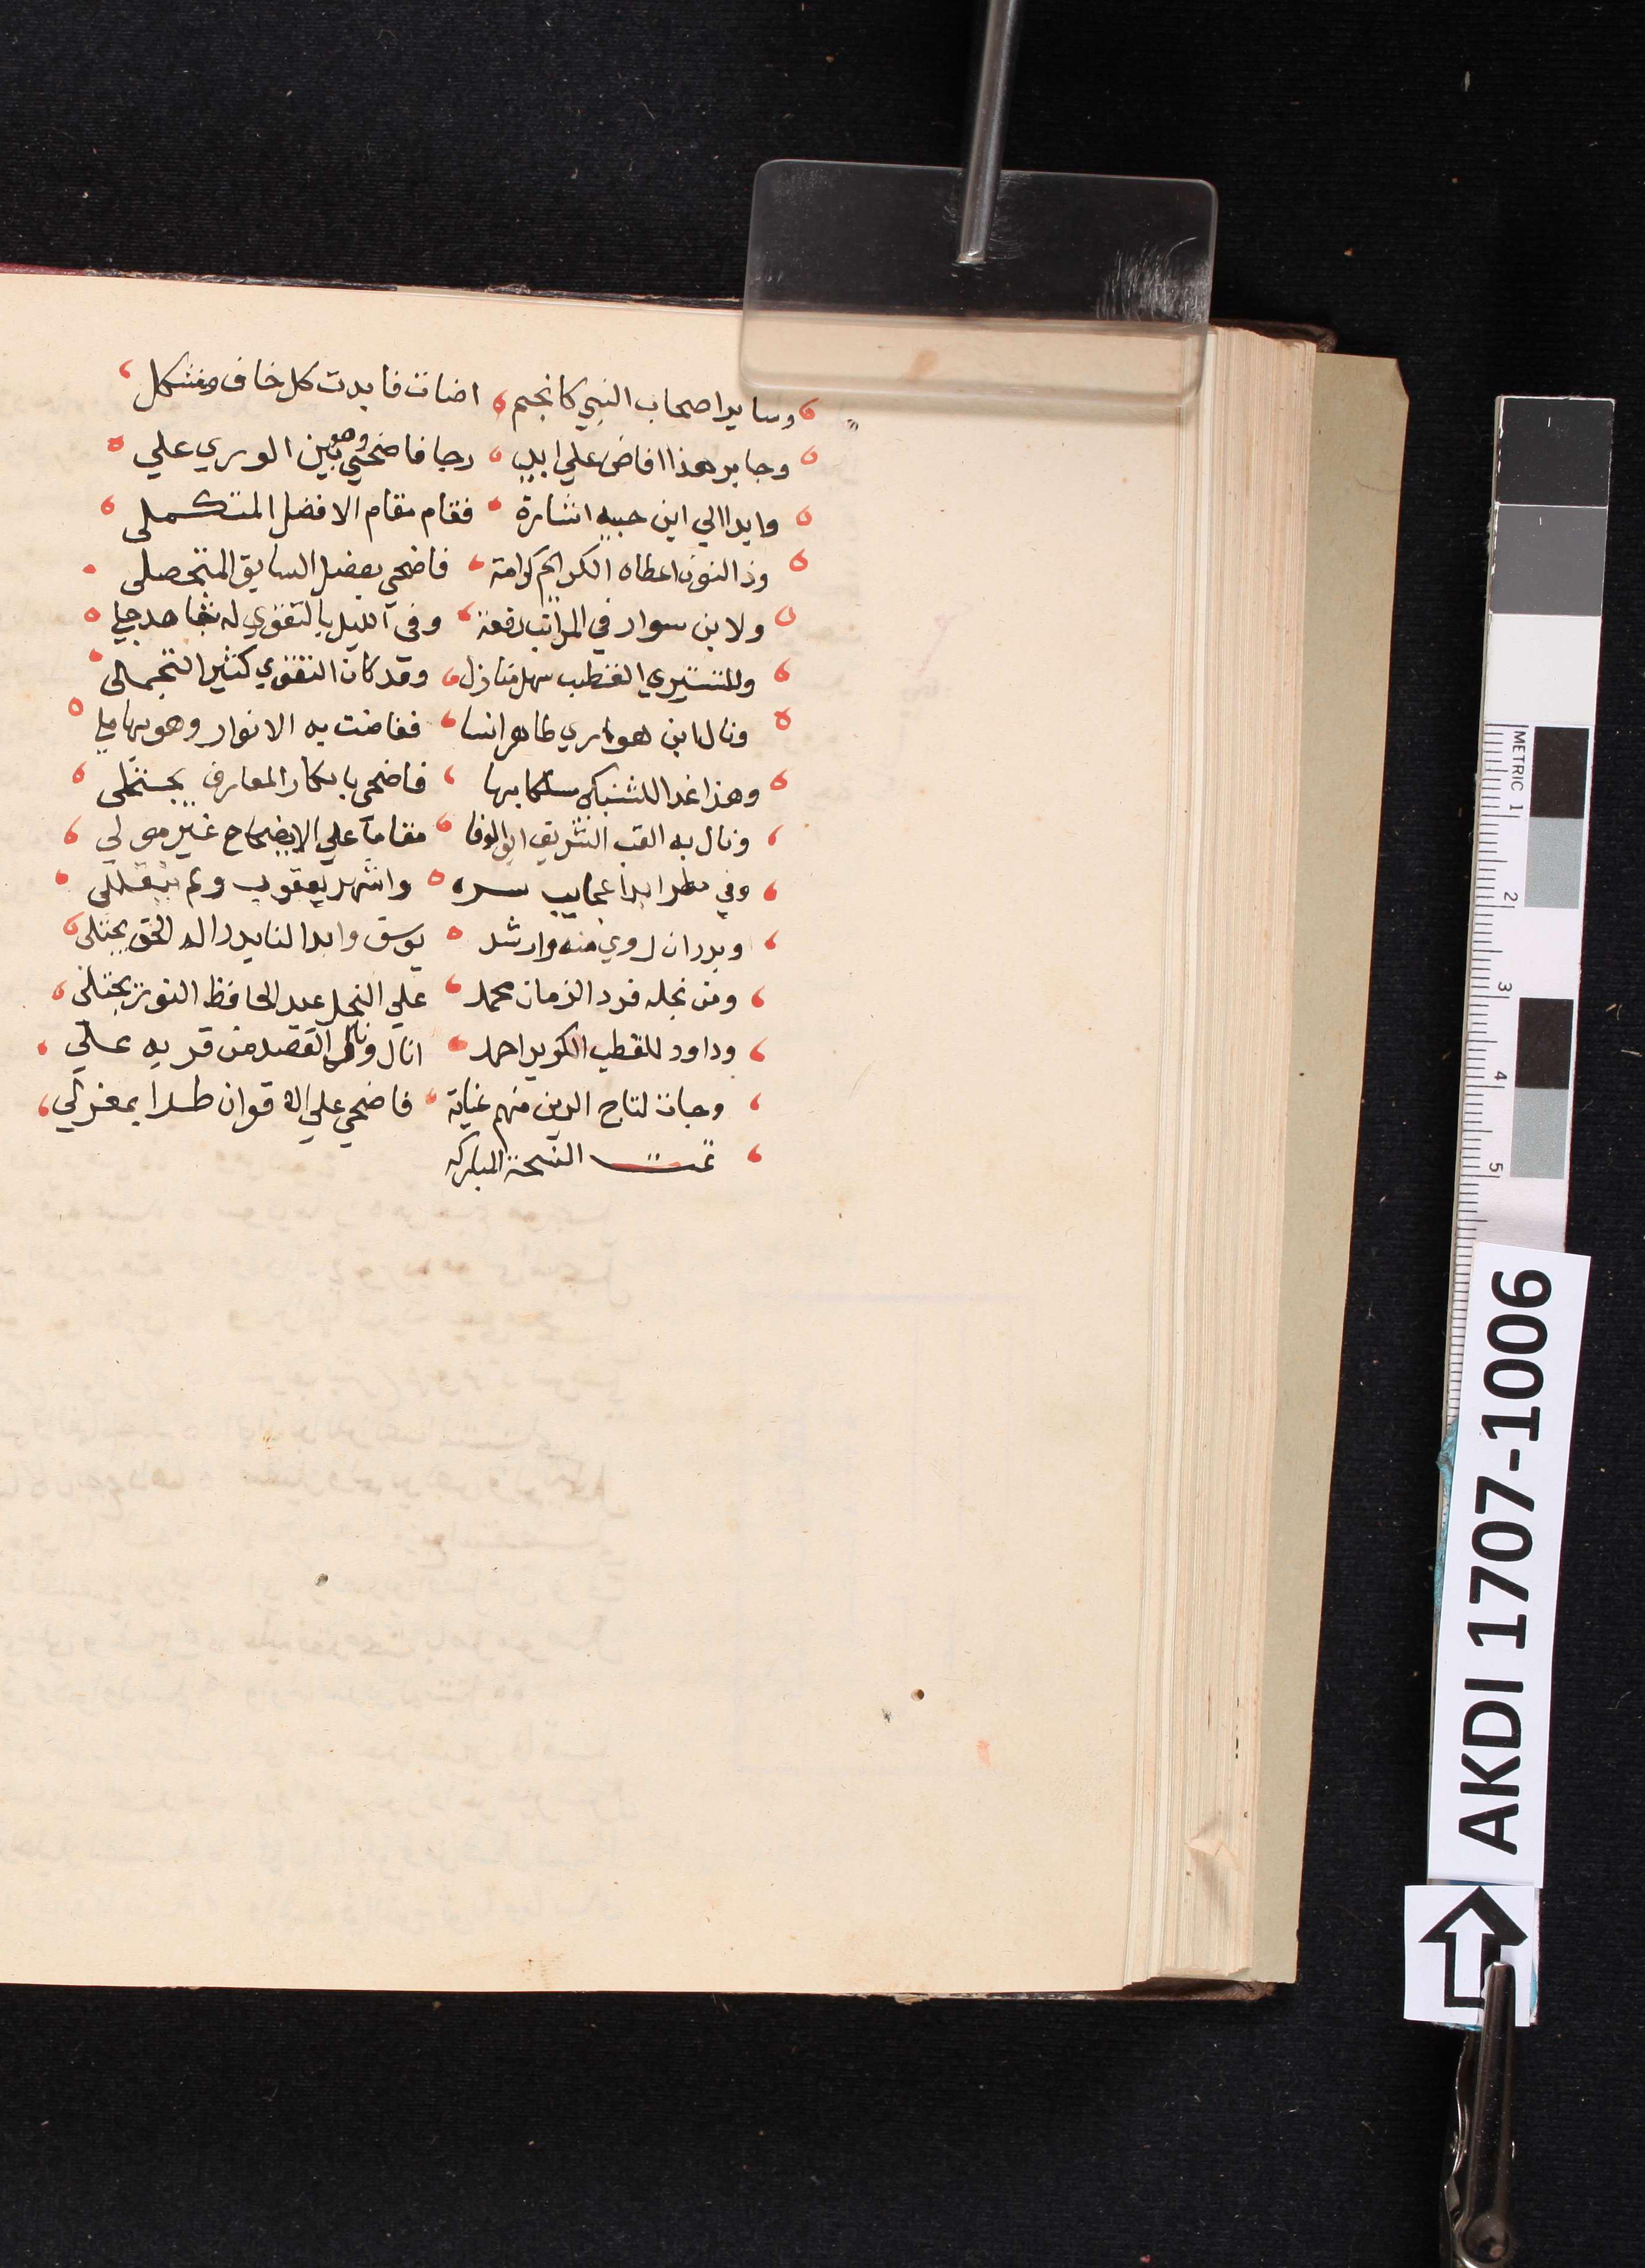 وسايرا صحاب النبي كانجم اضات فابدت كل خاف ومشكل
وجابر هذا افاض علي ابيه رجا فاضحي وهو بين الوري علي
وابدا الي ابن حبيه اشارة فقام مقام الافضل المتكملي
وذا النون اعطاه الكرام كرامة فاضحي بفضل السابق المتحصلي
ولابن سوار في المراتب رفعة وفي الليل بالتقوي له
وللتستري القطب سهل منازل وقد كان التقوي كثير التجملي
ونال ابن هواري طاهر انسا ففاضت به الانوار وهو بها ملي
وهذا غدا للشنبكي فاضحي بابكار المعارف يجتلي
ونال به القب الشريف ابو الوفا مقاما علي الايضاح غير
وفي مطر ابدا عجايب سره واشهد يعقوب ولم
وبدران روي منه وارشد يوسف وابدا لنا بدر اله الخق يجتلي
ومن نجله فرد الزمان محمد علي النجل عبد الحافظ النور يجتلي
وداود للقطب الكوير احمد انال ونال القصد من قربه علي
وجات لتاج الدين منهم عناية فاضحي علي اله قران طرا بمغزلي
تمت النسخة المباركه
METRIC 1 2 3 4 5
AKDI 1707-1006